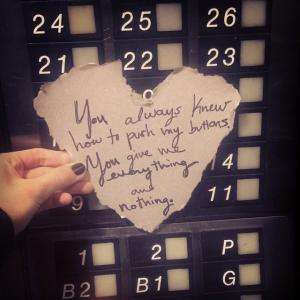 24 25 26
21 22 23
You always knew
how to push my buttons.
You give me
everything
and
nothing.
4
9 11
1 2 P
B2 B1 G